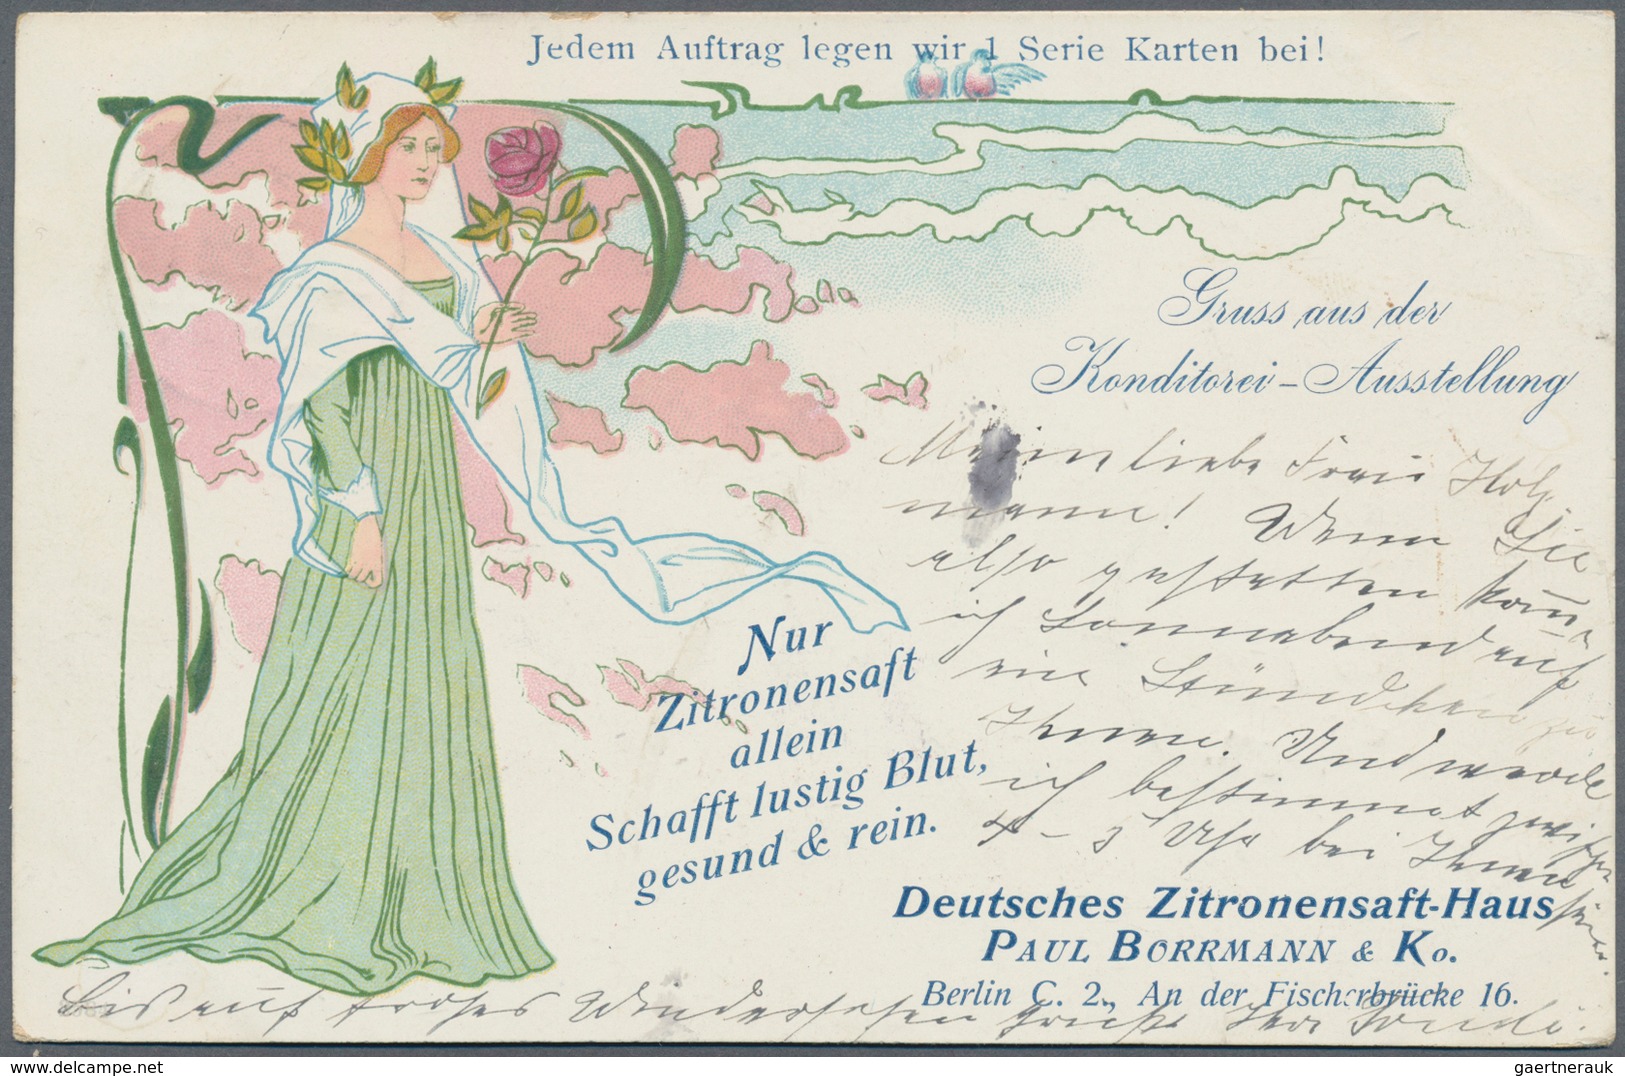 Jedem Auftrag legen wir 1 Serie Karten bei!
Gruss aus der
Konditorei-Ausstellung
Meine liebe Frau Holz-
mann! Wenn Sie
also gestatten komme
ich Sonnabend auf
ein Stündchen zu
Ihnen. Und werde
ich bestimmt zwischen
4-5 Uhr bei Ihnen
Nur
Zitronensaft
allein
Schafft lustig Blut,
gesund & rein.
Deutsches Zitronensaft-Haus
PAUL BORRMANN & Ko.
Berlin C. 2., An der Fischerbrücke 16.
Bis auf frohes Wiedersehen
gaertnerauk